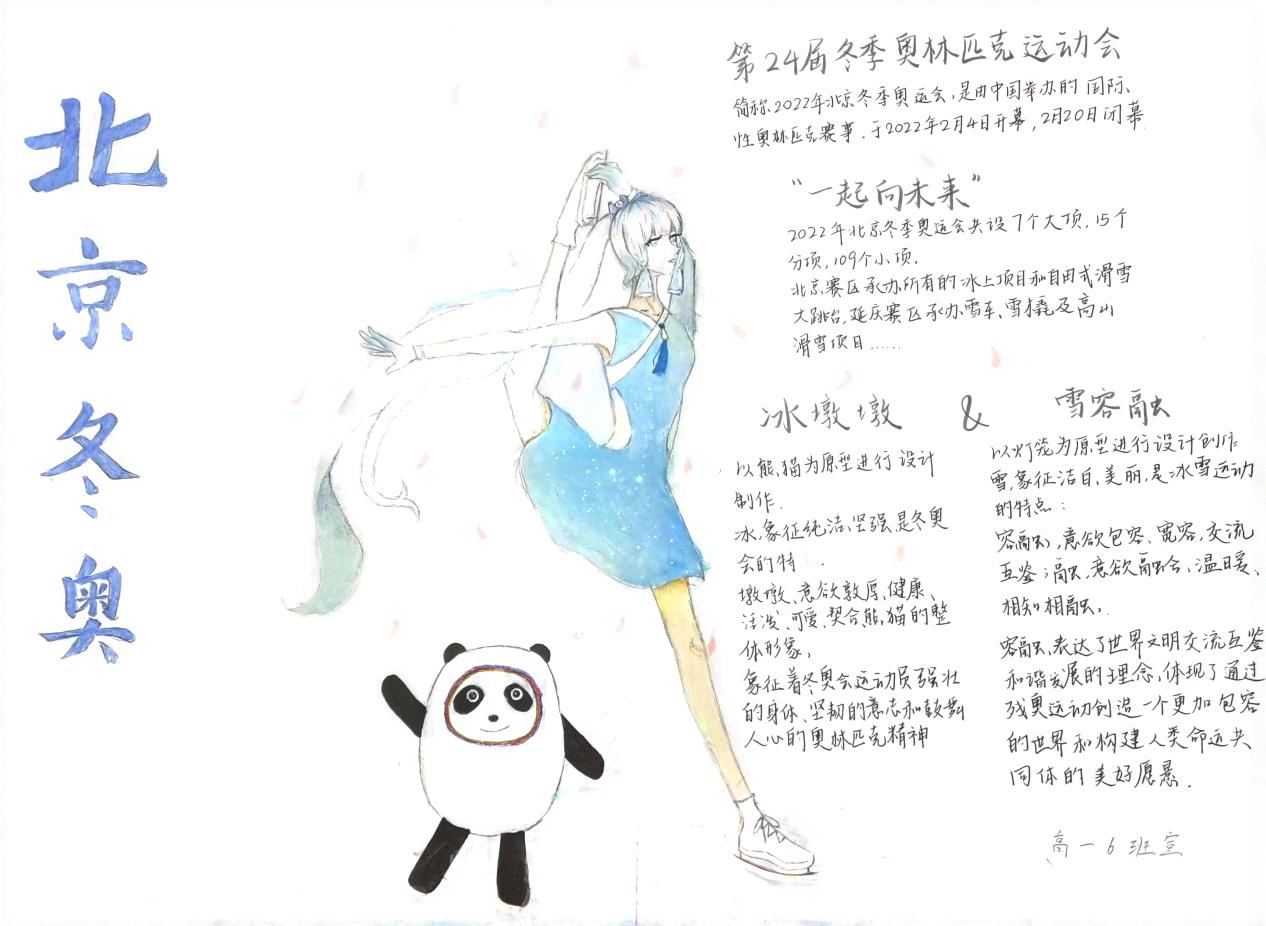 北
京
冬
奥
第24届冬季奥林匹克运动会
简称2022年北京冬季奥运会,是由中国举办的国际、
性奥林匹克赛事.于2022年2月4日开幕,2月20日闭幕
“一起向未来”
2022年北京冬季奥运会共设7个大项,15个
分项,109个小项.
北京赛区承办所有的冰上项目和自由式滑雪
大跳台,延庆赛区承办雪车、雪橇及高山
滑雪项目……
冰墩墩 & 雪容融
以熊猫为原型进行设计
制作.
冰,象征纯洁、坚强,是冬奥
会的特
墩墩、意欲敦厚、健康、
活泼、可爱、契合熊猫的整
体形象,
象征着冬奥会运动员强壮
的身体、坚韧的意志和鼓舞
人心的奥林匹克精神
以灯笼为原型进行设计创作
雪,象征洁白、美丽,是冰雪运动
的特点:
容融,意欲包容、宽容,交流
互鉴;融,意欲融合、温暖、
相知相融,.
容融、表达了世界文明交流互鉴
和谐发展的理念,体现了通过
残奥运动创造一个更加包容
的世界和构建人类命运共
同体的美好愿景.
高一6班宣